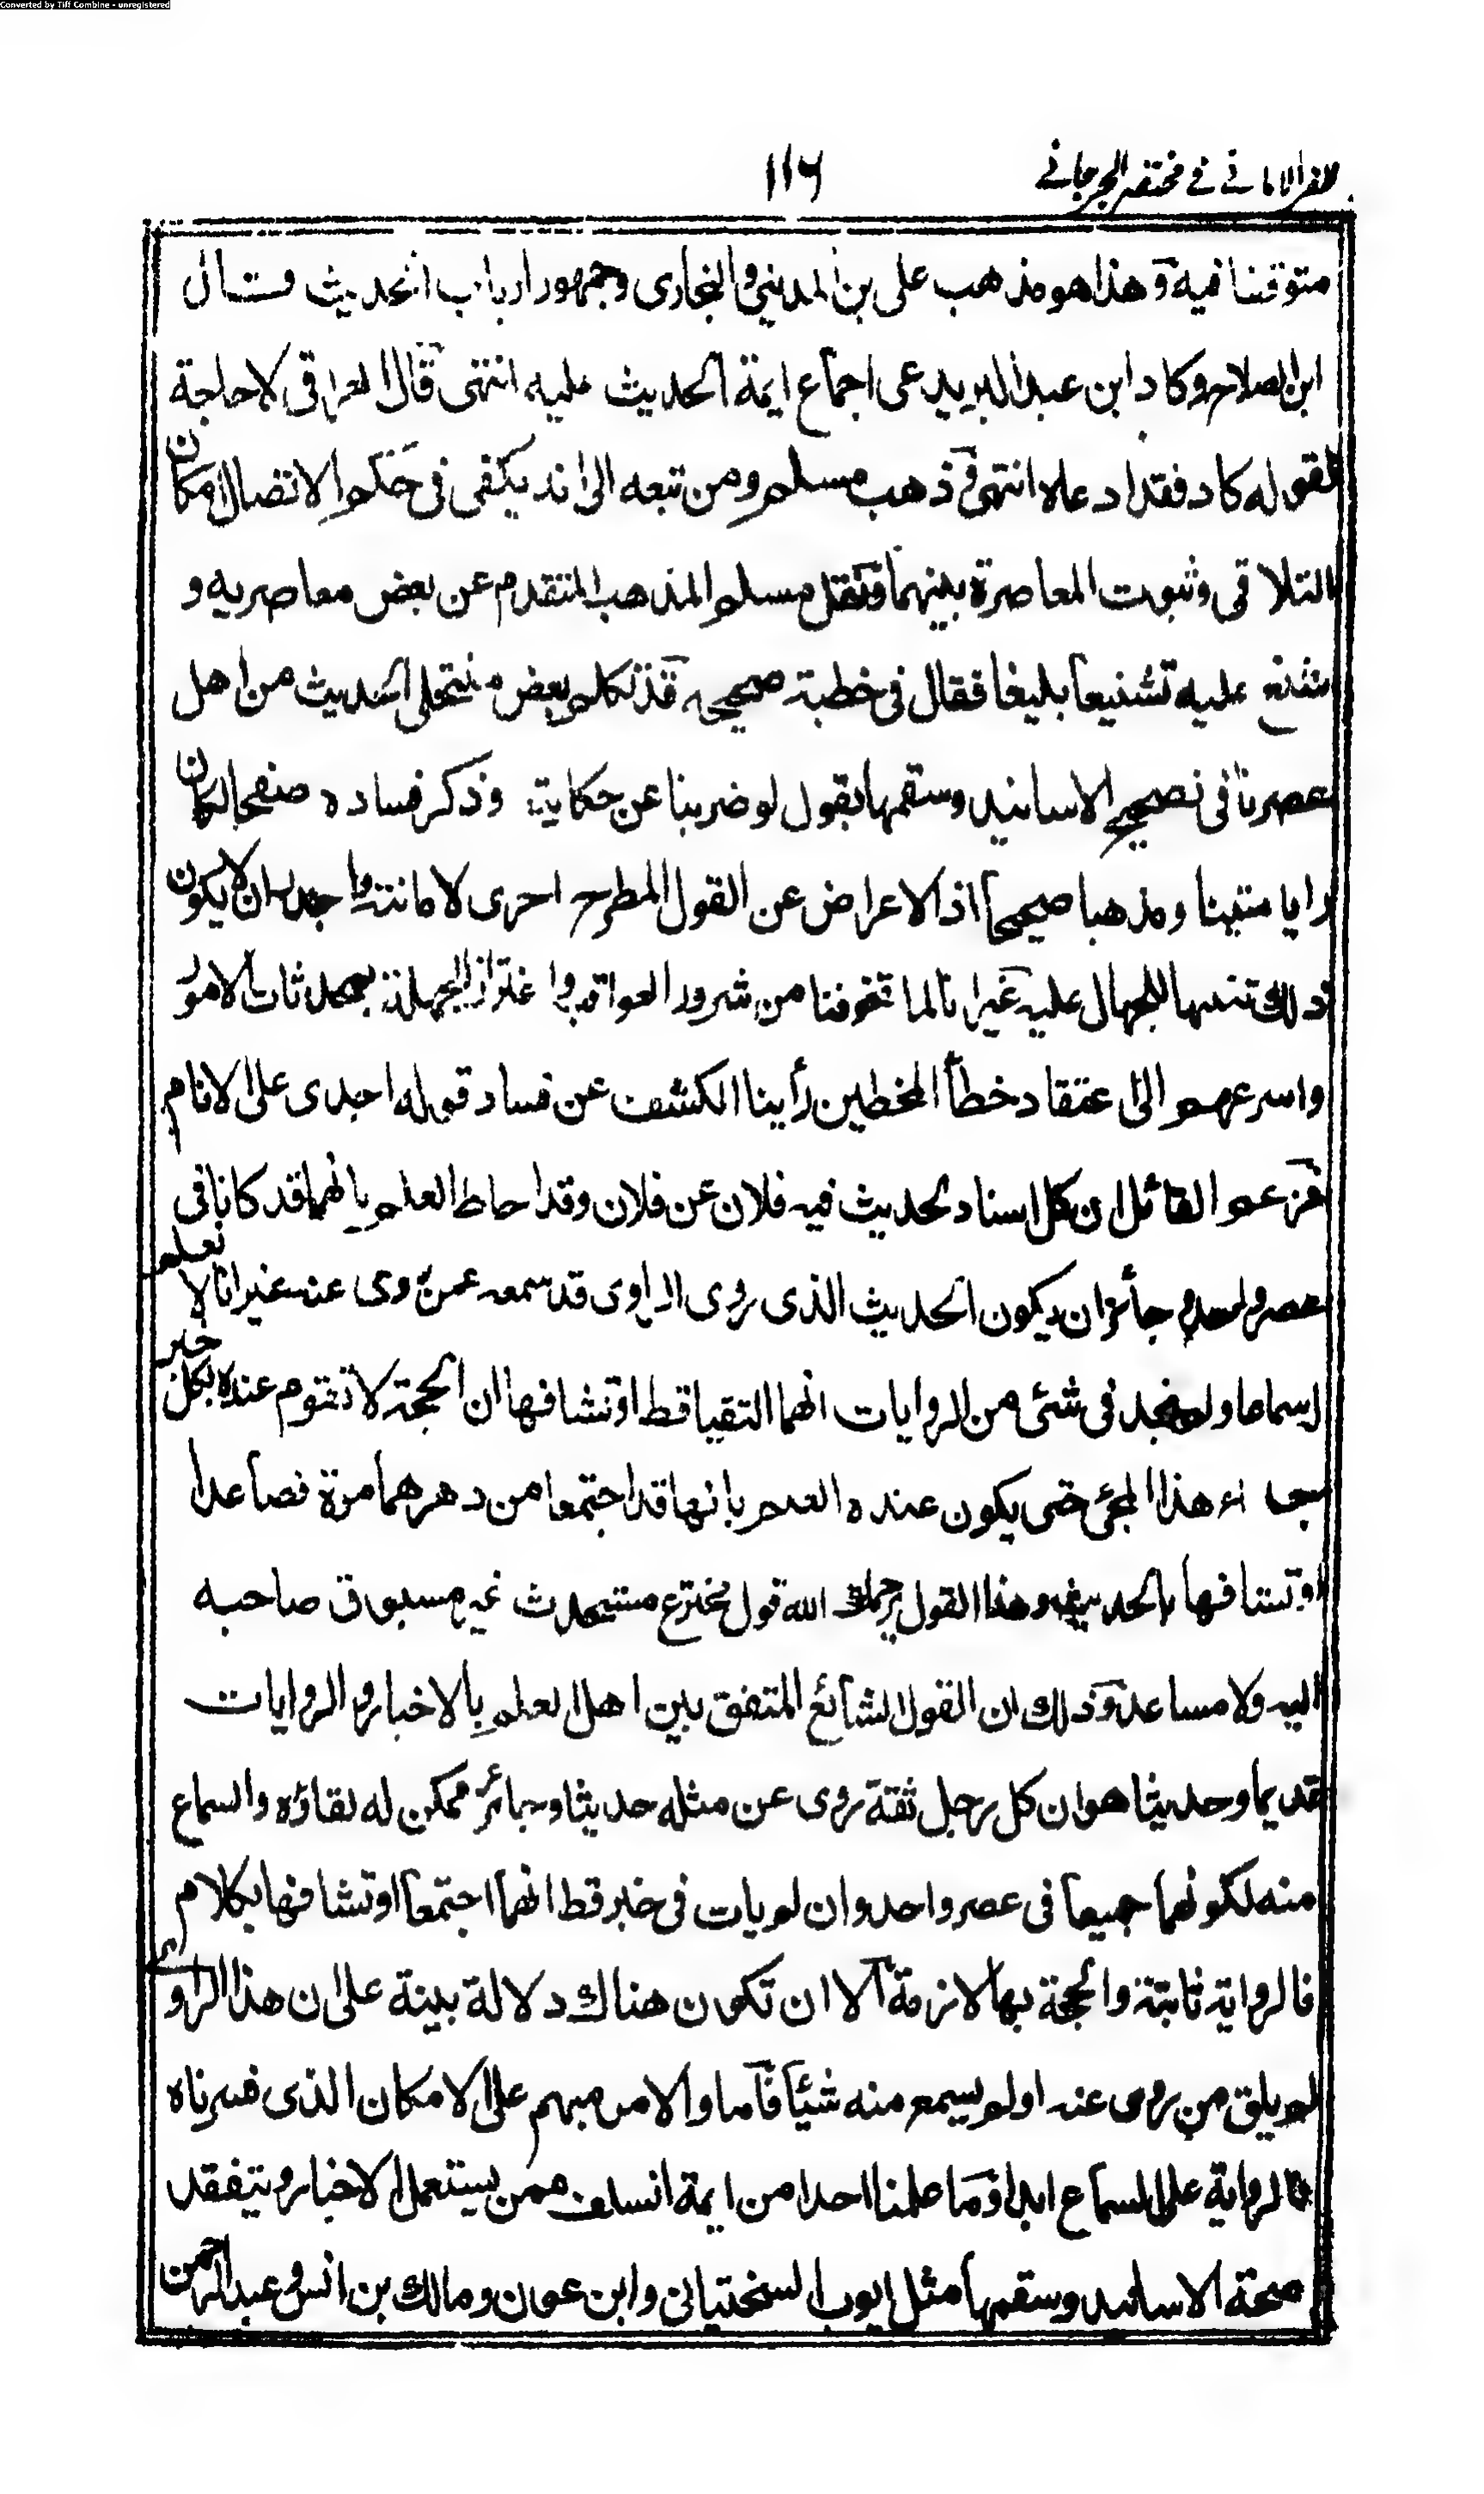 Converted by Tiff Combine - unregistered
ظفر الاماني في مختصر الجرجاني
۱۱۶
متوقفنا فيه وهذا هو مذهب على بن المديني والبخارى وجمهور ارباب الحديث وقال
ابن الصلاح وكاد ابن عبد البر يدعى اجماع ايمة الحديث عليه انتهى قال العراقى لا حاجة
لقوله كاد فقد ادعاه انتهى وذهب مسلم ومن تبعه الى انه يكفى فى حكم الاتصال امكان
التلاقى وثبوت المعاصرة بينهما ونقل مسلم المذهب المتقدم عن بعض معاصريه و
شنع عليه تشنيعا بليغا فقال فى خطبة صحيحه قد تكلم بعض منتحلى الحديث من اهل
عصرنا فى تصحيح الاسانيد وسقمها بقول لو ضربنا عن حكايته وذكر فساده صفحا لكان
رايا متينا ومذهبا صحيحا اذ الاعراض عن القول المطرح احرى لاماتته واجدر ان لا يكون
ذلك تنبيها للجهال عليه غير انا لما تخوفنا من شرور العواقب واغترار الجهلة بمحدثات الامور
واسرعهم الى اعتقاد خطأ المخطين رأينا الكشف عن فساد قوله اجدى على الانام
فزعم القائل ان كل اسناد لحديث فيه فلان عن فلان وقد احاط العلم بانهما قد كانا فى
عصر واحد وجائز ان يكون الحديث الذى روى الراوى قد سمعه عمن روى عنه غير انا لا نعلم
اسماعا ولم نجد فى شئ من الروايات انهما التقيا قط او تشافها ان الحجة لا تقوم عنده بكل خبر
جاء هذا المجئ حتى يكون عنده العلم بانهما قد اجتمعا من دهرهما مرة فصاعدا
او تشافها بالحديث وهذا القول يرحمك الله قول مخترع مستحدث غير مسبوق صاحبه
اليه ولا مساعد وذلك ان القول الشائع المتفق بين اهل العلم بالاخبار والروايات
قديما وحديثا هو ان كل رجل ثقة روى عن مثله حديثا وجائز ممكن له لقاؤه والسماع
منه لكونهما جميعا فى عصر واحد وان لم يات فى خبر قط انهما اجتمعا او تشافها بكلام
فالرواية ثابتة والحجة بها لازمة الا ان تكون هناك دلالة بينة على ان هذا الراوى
لم يلق من روى عنه او لم يسمع منه شيئا فاما والامر مبهم على الامكان الذى فسرناه
فالرواية على السماع ابدا وما علمنا احدا من ايمة السلف ممن يستعمل الاخبار ويتفقد
صحة الاسانيد وسقمها مثل ايوب السختيانى وابن عون ومالك بن انس وعبد الرحمن